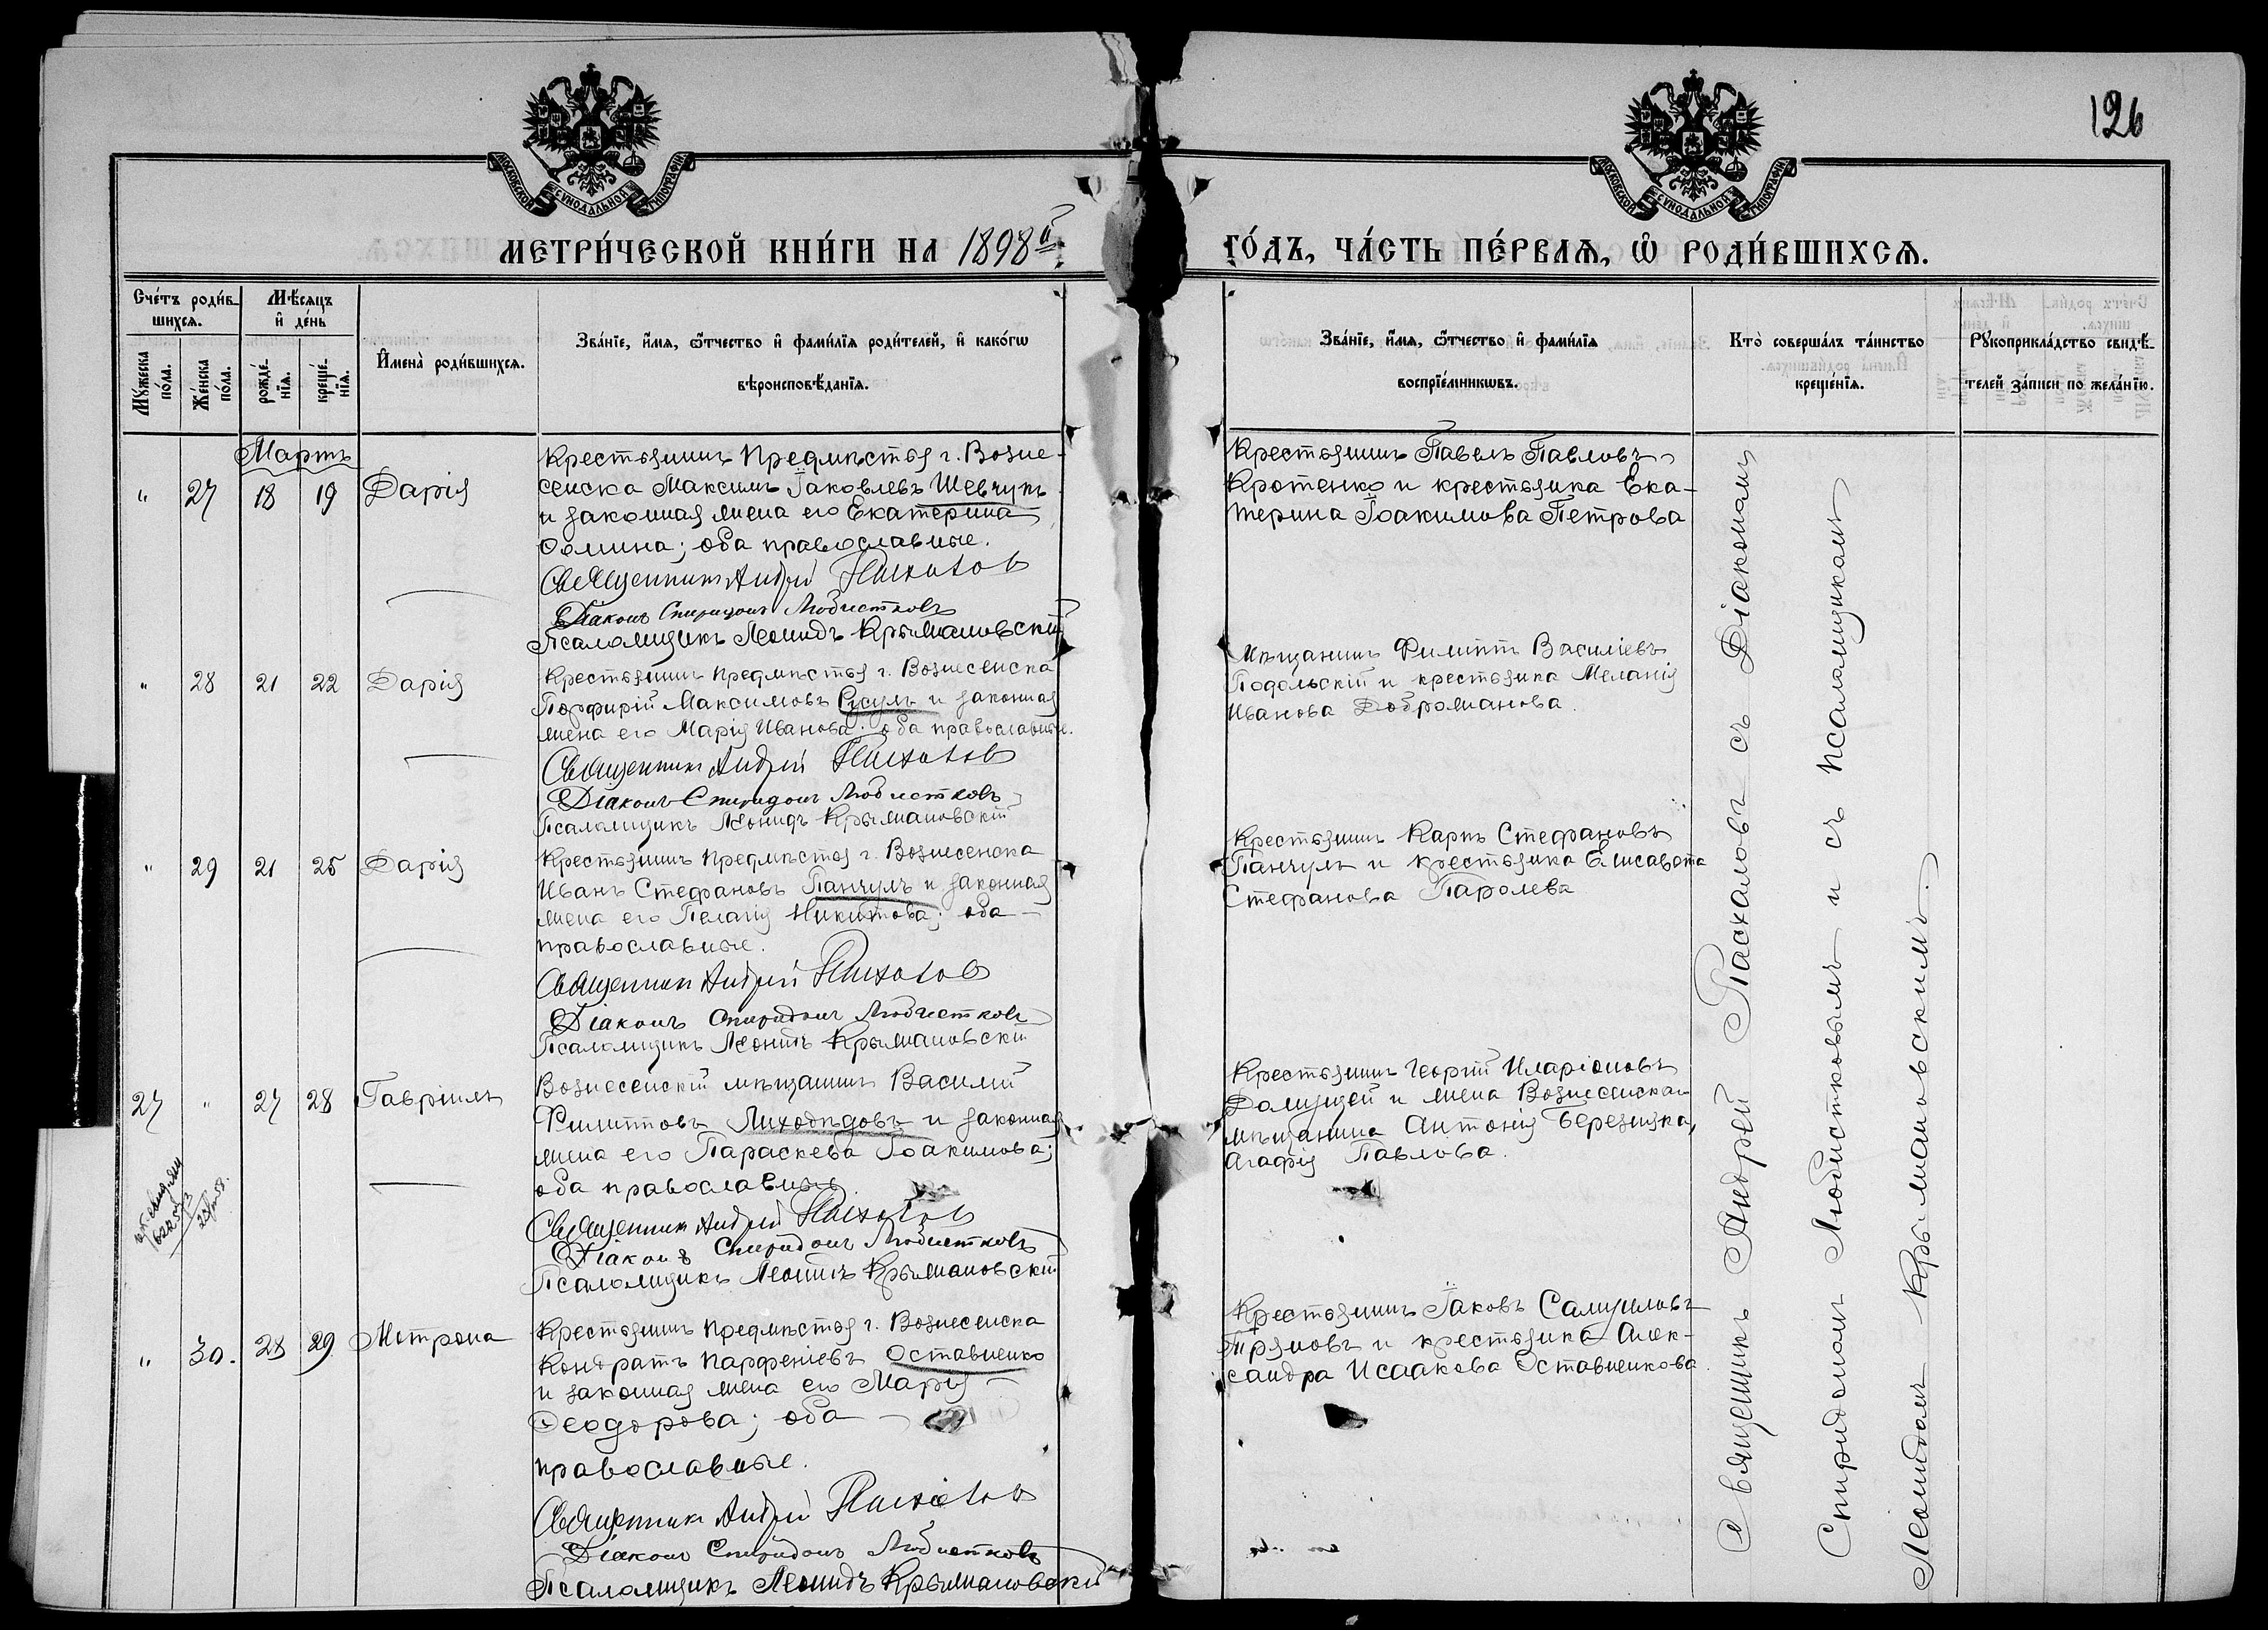 126
МОСКОВСКОЙ СѴНОДАЛЬНОЙ ТИПОГРАФІИ
МОСКОВСКОЙ СѴНОДАЛЬНОЙ ТИПОГРАФІИ
МЕТРИ́ЧЕСКОЙ КНИ́ГИ НА 1898й
ГО́ДЪ, ЧА́СТЬ ПЕ́РВАѦ, Ѽ РОДИ́ВШИХСѦ.
Сче́тъ роди́в-
шихсѧ.
Мꙋ́жеска по́ла.
Же́нска по́ла.
Мѣ́сѧцъ
и҆ де́нь
рожде́-
нїѧ.
креще́-
нїѧ.
И҆мена̀ роди́вшихсѧ.
Зва́нїе, и҆́мѧ, ѻ҆́тчество и҆ фами́лїѧ роди́телей, и҆ како́гѡ
вѣроисповѣ́данїѧ.
Зва́нїе, и҆́мѧ, ѻ҆́тчество и҆ фами́лїѧ
воспрїе́мникѡвъ.
Кто̀ соверша́лъ та́инство
креще́нїѧ.
Рꙋкоприкла́дство свидѣ́-
телей за́писи по жела́нїю.
Мартъ
" 27 18 19 Дарія
Крестьянинъ Предмѣстья г. Возне-
сенска Максимъ Іаковлевъ Шевчукъ
и законная жена его Екатерина
Ѳомина; оба православные.
Священникъ Андрей Пасхаловъ
Діаконъ Спиридонъ Любистковъ
Псаломщикъ Леонидъ Крыжановскій
Крестьянинъ Павелъ Павловъ
Кротенко и крестьянка Ека-
терина Іоакимова Петрова
" 28 21 22 Дарія
Крестьянинъ предмѣстья г. Вознесенска
Порфирій Максимовъ Русулъ и законная
жена его Марія Иванова; оба православные.
Священникъ Андрей Пасхаловъ
Діаконъ Спиридонъ Любистковъ
Псаломщикъ Леонидъ Крыжановскій
Мѣщанинъ Филиппъ Василіевъ
Подольскій и крестьянка Меланія
Иванова Доброжанова.
" 29 21 25 Дарія
Крестьянинъ предмѣстья г. Вознесенска
Иванъ Стефановъ Панчулъ и законная
жена его Пелагія Никитова; оба
православные.
Священникъ Андрей Пасхаловъ
Діаконъ Спиридонъ Любистковъ
Псаломщикъ Леонидъ Крыжановскій
Крестьянинъ Карпъ Стефановъ
Панчулъ и крестьянка Елисавета
Стефанова Паролева
27 " 27 28 Гавріилъ
Вознесенскій мѣщанинъ Василій
Филипповъ Лиходѣдовъ и законная
жена его Параскева Іоакимова;
оба православные.
Священникъ Андрей Пасхаловъ
Діаконъ Спиридонъ Любистковъ
Псаломщикъ Леонидъ Крыжановскій
Крестьянинъ Георгій Иларіоновъ
и жена Вознесенскаго
мѣщанина Антонія Березняка,
Агафія Павлова.
" 30. 28 29 Матрона
Крестьянинъ предмѣстья г. Вознесенска
Кондратъ Парфеніевъ Оставненко
и законная жена его Марія
Ѳеодорова; оба
православные.
Священникъ Андрей Пасхаловъ
Діаконъ Спиридонъ Любистковъ
Псаломщикъ Леонидъ Крыжановскій
Крестьянинъ Іаковъ Самуиловъ
и крестьянка Алек-
сандра Исаакова Оставненкова.
Священникъ Андрей Пасхаловъ съ Діакономъ
Спиридономъ Любистковымъ и съ псаломщикомъ
Леонидомъ Крыжановскимъ.